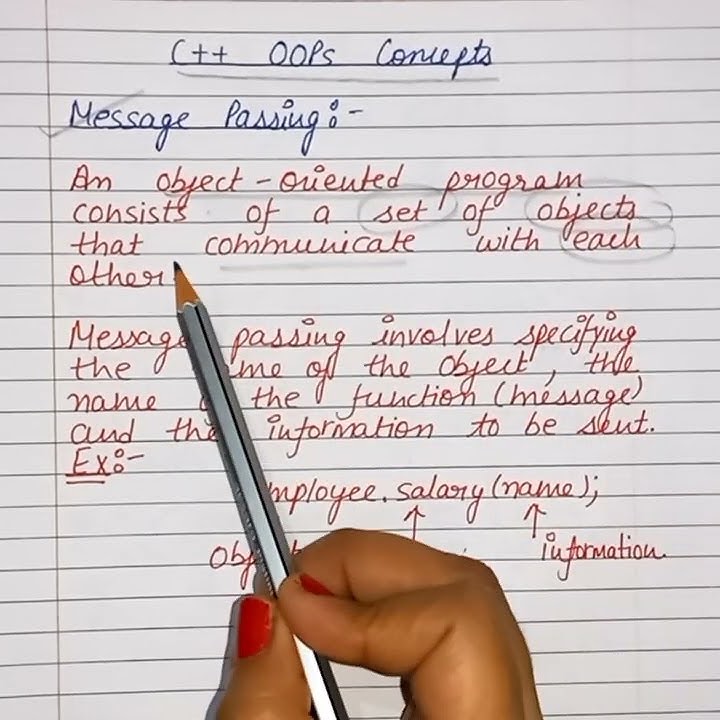 C++ OOPs Concepts
Message Passing:-
An object-oriented program
consists of a set of objects
that communicate with each
other
Message passing involves specifying
the me of the object, the
name the function (message)
and the information to be sent.
Ex:-
mployee. salary (name);
Obj information